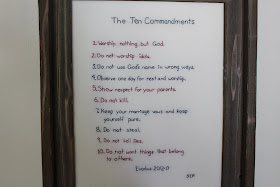 The Ten Commandments
1. Worship nothing but God.
2. Do not worship idols.
3. Do not use God's name in wrong ways.
4. Observe one day for rest and worship.
5. Show respect for your parents.
6. Do not kill.
7. Keep your marriage vows and keep
yourself pure.
8. Do not steal.
9. Do not tell lies.
10. Do not want things that belong
to others.
Exodus 20:2-17